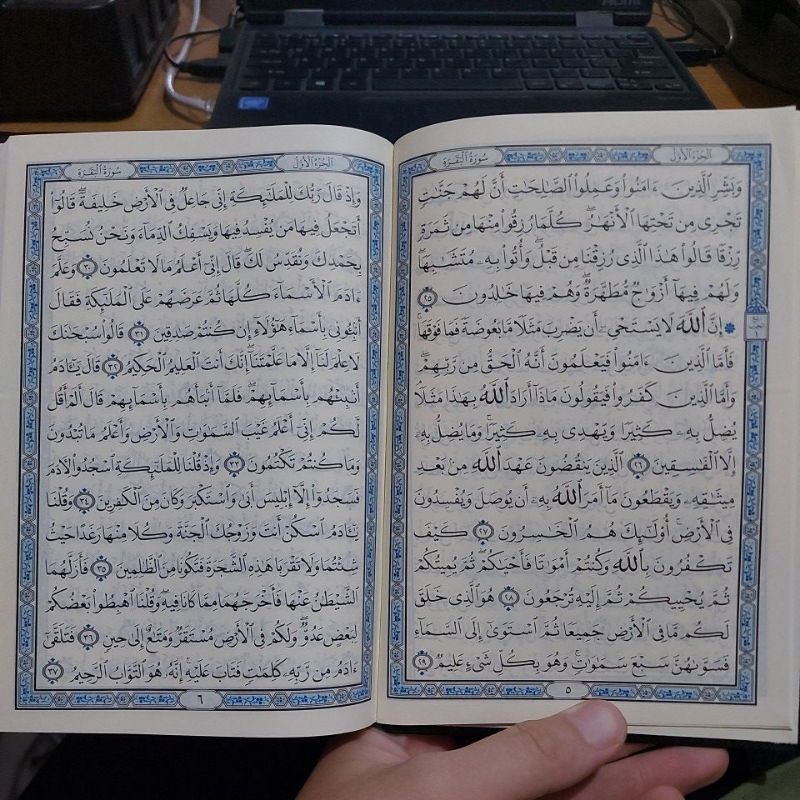 سُورَةُ الْبَقَرَةِ
الْجُزْءُ الْأَوَّلُ
وَبَشِّرِ الَّذِينَ ءَامَنُوا وَعَمِلُوا الصَّالِحَاتِ أَنَّ لَهُمْ جَنَّاتٍ
تَجْرِي مِن تَحْتِهَا الْأَنْهَارُ ۖ كُلَّمَا رُزِقُوا مِنْهَا مِن ثَمَرَةٍ
رِّزْقًا قَالُوا هَٰذَا الَّذِي رُزِقْنَا مِن قَبْلُ ۖ وَأُتُوا بِهِ مُتَشَابِهًا ۖ
وَلَهُمْ فِيهَا أَزْوَاجٌ مُّطَهَّرَةٌ ۖ وَهُمْ فِيهَا خَالِدُونَ ٢٥
۞ إِنَّ اللَّهَ لَا يَسْتَحْيِي أَن يَضْرِبَ مَثَلًا مَّا بَعُوضَةً فَمَا فَوْقَهَا ۚ
فَأَمَّا الَّذِينَ ءَامَنُوا فَيَعْلَمُونَ أَنَّهُ الْحَقُّ مِن رَّبِّهِمْ ۖ
وَأَمَّا الَّذِينَ كَفَرُوا فَيَقُولُونَ مَاذَا أَرَادَ اللَّهُ بِهَٰذَا مَثَلًا ۘ
يُضِلُّ بِهِ كَثِيرًا وَيَهْدِي بِهِ كَثِيرًا ۚ وَمَا يُضِلُّ بِهِ
إِلَّا الْفَاسِقِينَ ٢٦ الَّذِينَ يَنقُضُونَ عَهْدَ اللَّهِ مِن بَعْدِ
مِيثَاقِهِ وَيَقْطَعُونَ مَا أَمَرَ اللَّهُ بِهِ أَن يُوصَلَ وَيُفْسِدُونَ
فِي الْأَرْضِ ۚ أُولَٰئِكَ هُمُ الْخَاسِرُونَ ٢٧ كَيْفَ
تَكْفُرُونَ بِاللَّهِ وَكُنتُمْ أَمْوَاتًا فَأَحْيَاكُمْ ۖ ثُمَّ يُمِيتُكُمْ
ثُمَّ يُحْيِيكُمْ ثُمَّ إِلَيْهِ تُرْجَعُونَ ٢٨ هُوَ الَّذِي خَلَقَ
لَكُم مَّا فِي الْأَرْضِ جَمِيعًا ثُمَّ اسْتَوَىٰ إِلَى السَّمَاءِ
فَسَوَّاهُنَّ سَبْعَ سَمَاوَاتٍ ۚ وَهُوَ بِكُلِّ شَيْءٍ عَلِيمٌ ٢٩
٥
سُورَةُ الْبَقَرَةِ
الْجُزْءُ الْأَوَّلُ
وَإِذْ قَالَ رَبُّكَ لِلْمَلَائِكَةِ إِنِّي جَاعِلٌ فِي الْأَرْضِ خَلِيفَةً ۖ قَالُوا
أَتَجْعَلُ فِيهَا مَن يُفْسِدُ فِيهَا وَيَسْفِكُ الدِّمَاءَ وَنَحْنُ نُسَبِّحُ
بِحَمْدِكَ وَنُقَدِّسُ لَكَ ۖ قَالَ إِنِّي أَعْلَمُ مَا لَا تَعْلَمُونَ ٣٠ وَعَلَّمَ
ءَادَمَ الْأَسْمَاءَ كُلَّهَا ثُمَّ عَرَضَهُمْ عَلَى الْمَلَائِكَةِ فَقَالَ
أَنبِئُونِي بِأَسْمَاءِ هَٰؤُلَاءِ إِن كُنتُمْ صَادِقِينَ ٣١ قَالُوا سُبْحَانَكَ
لَا عِلْمَ لَنَا إِلَّا مَا عَلَّمْتَنَا ۖ إِنَّكَ أَنتَ الْعَلِيمُ الْحَكِيمُ ٣٢ قَالَ يَا ءَادَمُ
أَنبِئْهُم بِأَسْمَائِهِمْ ۖ فَلَمَّا أَنبَأَهُم بِأَسْمَائِهِمْ قَالَ أَلَمْ أَقُل
لَّكُمْ إِنِّي أَعْلَمُ غَيْبَ السَّمَاوَاتِ وَالْأَرْضِ وَأَعْلَمُ مَا تُبْدُونَ
وَمَا كُنتُمْ تَكْتُمُونَ ٣٣ وَإِذْ قُلْنَا لِلْمَلَائِكَةِ اسْجُدُوا لِءَادَمَ
فَسَجَدُوا إِلَّا إِبْلِيسَ أَبَىٰ وَاسْتَكْبَرَ وَكَانَ مِنَ الْكَافِرِينَ ٣٤ وَقُلْنَا
يَا ءَادَمُ اسْكُنْ أَنتَ وَزَوْجُكَ الْجَنَّةَ وَكُلَا مِنْهَا رَغَدًا حَيْثُ
شِئْتُمَا وَلَا تَقْرَبَا هَٰذِهِ الشَّجَرَةَ فَتَكُونَا مِنَ الظَّالِمِينَ ٣٥ فَأَزَلَّهُمَا
الشَّيْطَانُ عَنْهَا فَأَخْرَجَهُمَا مِمَّا كَانَا فِيهِ ۖ وَقُلْنَا اهْبِطُوا بَعْضُكُمْ
لِبَعْضٍ عَدُوٌّ ۖ وَلَكُمْ فِي الْأَرْضِ مُسْتَقَرٌّ وَمَتَاعٌ إِلَىٰ حِينٍ ٣٦ فَتَلَقَّىٰ
ءَادَمُ مِن رَّبِّهِ كَلِمَاتٍ فَتَابَ عَلَيْهِ ۚ إِنَّهُ هُوَ التَّوَّابُ الرَّحِيمُ ٣٧
٦